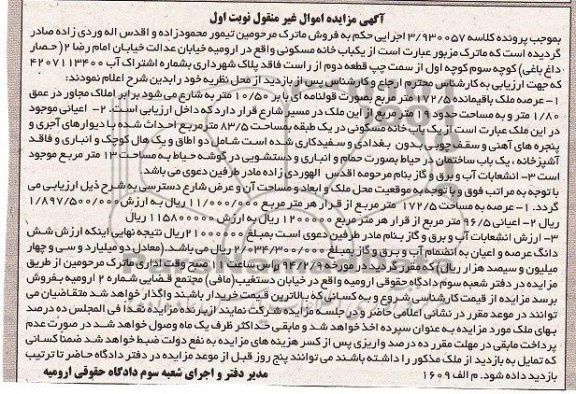 آگهی مزایده اموال غیر منقول نوبت اول
بموجب پرونده کلاسه ۳/۹۳۰۰۵۷ اجرایی حکم به فروش ماترک مرحومین تیمور محمودزاده و اقدس اله وردی زاده صادر
گردیده است که ماترک مزبور عبارت است از یکباب خانه مسکونی واقع در ارومیه خیابان عدالت خیابان امام رضا ۲(حصار
داغ باغی) کوچه سوم کوچه اول از سمت چپ قطعه دوم از راست فاقد پلاک شهرداری بشماره اشتراک آب ۴۲۰۷۱۱۳۴۰۰
که جهت ارزیابی به کارشناس محترم ارجاع و کارشناس پس از بازدید از محل نظریه خود را بدین شرح اعلام نمودند:
۱- عرصه ملک باقیمانده ۱۷۲/۵ متر مربع بصورت قولنامه ای با بر ۱۰/۵۰ متر به شارع می شود برابر املاک مجاور در عمق
۱/۸۰ متر و به مساحت حدود ۱۹ متر مربع از این ملک در مسیر شارع قرار دارد که داخل ارزیابی است. ۲- اعیانی موجود
در این ملک عبارت است از یک باب خانه مسکونی در یک طبقه بمساحت ۸۳/۵ متر مربع احداث شده با دیوارهای آجری و
پنجره های آهنی و سقف چوبی بدون بغدادی و سفیدکاری شده است شامل دو اطاق و یک هال کوچک و انباری و فاقد
آشپزخانه، یک باب ساختمان در حیاط بصورت حمام و انباری و دستشویی در گوشه حیاط به مساحت ۱۳ متر مربع موجود
است ۳- انشعابات آب و برق و گاز بنام مرحومه اقدس الهوردی زاده مادر طرفین دعوی می باشد.
با توجه به مراتب فوق و با توجه به موقعیت محل ملک و ابعاد و مساحت آن و عرض شارع دسترسی به شرح ذیل ارزیابی می
گردد. ۱- عرصه به مساحت ۱۷۲/۵ متر مربع از قرار هر متر مربع ۱۱/۰۰۰/۰۰۰ ریال به ارزش ۱/۸۹۷/۵۰۰/۰۰۰
ریال ۲- اعیانی ۹۶/۵ متر مربع از قرار هر متر مربع ۱۲۰۰۰۰۰ ریال به ارزش ۱۱۵۸۰۰۰۰۰ ریال
۳- ارزش انشعابات آب و برق و گاز بنام مادر طرفین دعوی است بمبلغ ۲۱۰۰۰۰۰۰ ریال نتیجه نهایی اینکه ارزش شش
دانگ عرصه و اعیان به انضمام آب و برق و گاز بمبلغ ۲/۰۳۴/۳۰۰/۰۰۰ ریال می باشد. (معادل دو میلیارد و سی و چهار
میلیون و سیصد هزار ریال) که مقرر گردید در مورخه راس ساعت صبح وقت اداری ماترک مرحومین از طریق
مزایده در دفتر شعبه سوم دادگاه حقوقی ارومیه واقع در خیابان دستغیب(مافی) مجتمع قضایی شماره ۲ ارومیه بفروش
برسد مزایده از قیمت کارشناسی شروع و به کسانی که بالاترین قیمت خریدار باشند واگذار خواهد شد متقاضیان می
توانند در موعد مقرر در نشانی اعلامی حاضر و در جلسه مزایده شرکت نمایند از برنده مزایده نقدا فی المجلس ده درصد
بهای ملک مورد مزایده به عنوان سپرده اخذ خواهد شد و مابقی حداکثر ظرف یک ماه وصول خواهد شد در صورت عدم
پرداخت مابقی در مهلت مقرر ده درصد واریزی پس از کسر هزینه های مزایده به نفع دولت ضبط خواهد شد ضمنا کسانی
که تمایل به بازدید از ملک مذکور را داشته باشند می توانند پنج روز قبل از موعد مزایده در دفتر دادگاه حاضر تا ترتیب
بازدید داده شود. م الف ۱۶۰۹
مدیر دفتر و اجرای شعبه سوم دادگاه حقوقی ارومیه